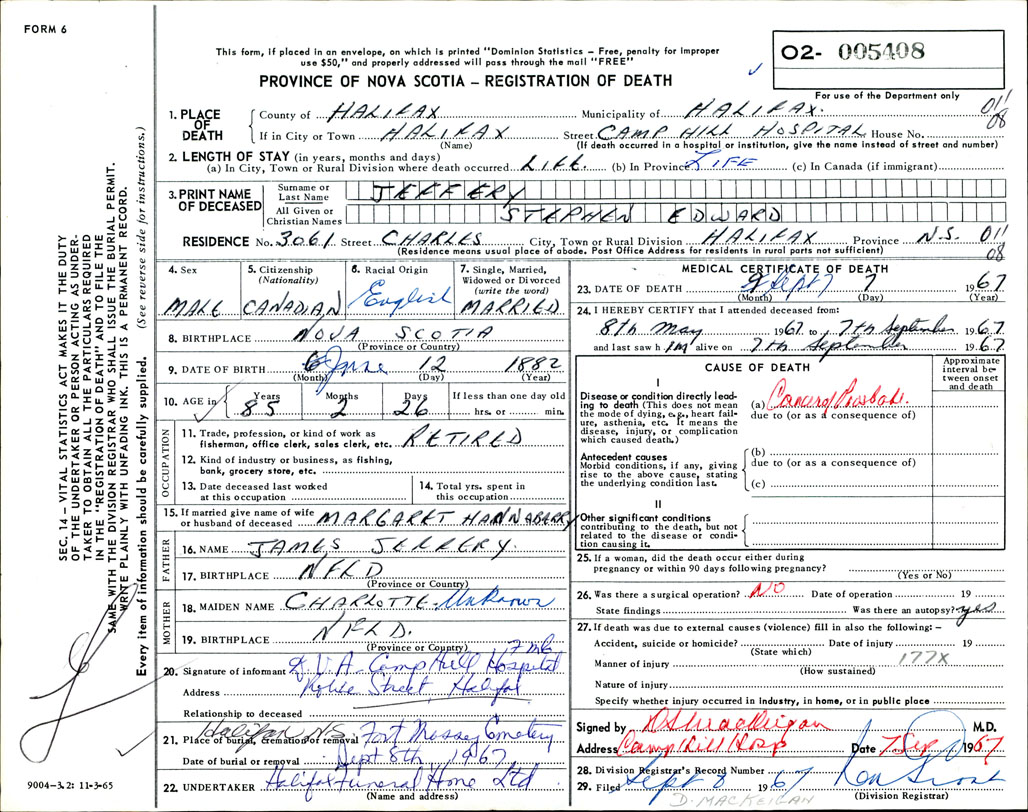 FORM 6
This form, if placed in an envelope, on which is printed "Dominion Statistics – Free, penalty for improper
use $50," and properly addressed will pass through the mail "FREE"
O2- 005408
PROVINCE OF NOVA SCOTIA – REGISTRATION OF DEATH
For use of the Department only
1. PLACE OF DEATH
County of HALIFAX Municipality of HALIFAX. 011
If in City or Town HALIFAX Street CAMP HILL HOSPITAL House No. 08
(Name) (If death occurred in a hospital or institution, give the name instead of street and number)
2. LENGTH OF STAY (in years, months and days)
(a) In City, Town or Rural Division where death occurred LIFE. (b) In Province LIFE (c) In Canada (if immigrant)
3. PRINT NAME OF DECEASED
Surname or Last Name JEFFERY
All Given or Christian Names STEPHEN EDWARD
RESIDENCE No. 3061 Street CHARLES City, Town or Rural Division HALIFAX Province N.S. 011
(Residence means usual place of abode. Post Office Address for residents in rural parts not sufficient) 08
4. Sex MALE
5. Citizenship (Nationality) CANADIAN
6. Racial Origin English
7. Single, Married, Widowed or Divorced (write the word) MARRIED
8. BIRTHPLACE NOVA SCOTIA
(Province or Country)
9. DATE OF BIRTH June 12 1882
(Month) (Day) (Year)
10. AGE in Years 85 Months 2 Days 26 If less than one day old
hrs. or min.
OCCUPATION
11. Trade, profession, or kind of work as RETIRED
fisherman, office clerk, sales clerk, etc.
12. Kind of industry or business, as fishing,
bank, grocery store, etc.
13. Date deceased last worked at this occupation
14. Total yrs. spent in this occupation
15. If married give name of wife or husband of deceased MARGARET HANNABERRY
FATHER
16. NAME JAMES JEFFERY.
17. BIRTHPLACE NFLD
(Province or Country)
MOTHER
18. MAIDEN NAME CHARLOTTE Unknown
19. BIRTHPLACE NFLD.
(Province or Country)
20. Signature of informant D.V.A. Camp Hill Hospital
Address Robie Street, Halifax
Relationship to deceased
21. Place of burial, cremation or removal Halifax N.S. Fort Massey Cemetery
Date of burial or removal Sept 8th 1967
22. UNDERTAKER Halifax Funeral Home Ltd
(Name and address)
MEDICAL CERTIFICATE OF DEATH
23. DATE OF DEATH Sept 7 1967
(Month) (Day) (Year)
24. I HEREBY CERTIFY that I attended deceased from:
8th May 1967 to 7th September 1967
and last saw him alive on 7th September 1967
CAUSE OF DEATH
Approximate interval between onset and death
I
Disease or condition directly leading to death (This does not mean the mode of dying, e.g., heart failure, asthenia, etc. It means the disease, injury, or complication which caused death.)
(a) Cancer of Prostate.
due to (or as a consequence of)
Antecedent causes
Morbid conditions, if any, giving rise to the above cause, stating the underlying condition last.
(b)
due to (or as a consequence of)
(c)
II
Other significant conditions
contributing to the death, but not related to the disease or condition causing it.
25. If a woman, did the death occur either during
pregnancy or within 90 days following pregnancy?
(Yes or No)
26. Was there a surgical operation? NO Date of operation 19
State findings Was there an autopsy? yes
27. If death was due to external causes (violence) fill in also the following: –
Accident, suicide or homicide? Date of injury 19
(State which)
Manner of injury 177X
(How sustained)
Nature of injury
Specify whether injury occurred in industry, in home, or in public place
Signed by M.D.
Address Camp Hill Hosp Date 7 Sep 1967
28. Division Registrar's Record Number
29. Filed Sept 8 1967
(Division Registrar)
D. MACKEIGAN
SEC. 14 – VITAL STATISTICS ACT MAKES IT THE DUTY
OF THE UNDERTAKER OR PERSON ACTING AS UNDER-
TAKER TO OBTAIN ALL THE PARTICULARS REQUIRED
IN THE "REGISTRATION OF DEATH" AND TO FILE THE
SAME WITH THE DIVISION REGISTRAR WHO SHALL ISSUE THE BURIAL PERMIT.
WRITE PLAINLY WITH UNFADING INK. THIS IS A PERMANENT RECORD.
Every item of information should be carefully supplied. (See reverse side for instructions.)
9004-3.2: 11-3-65